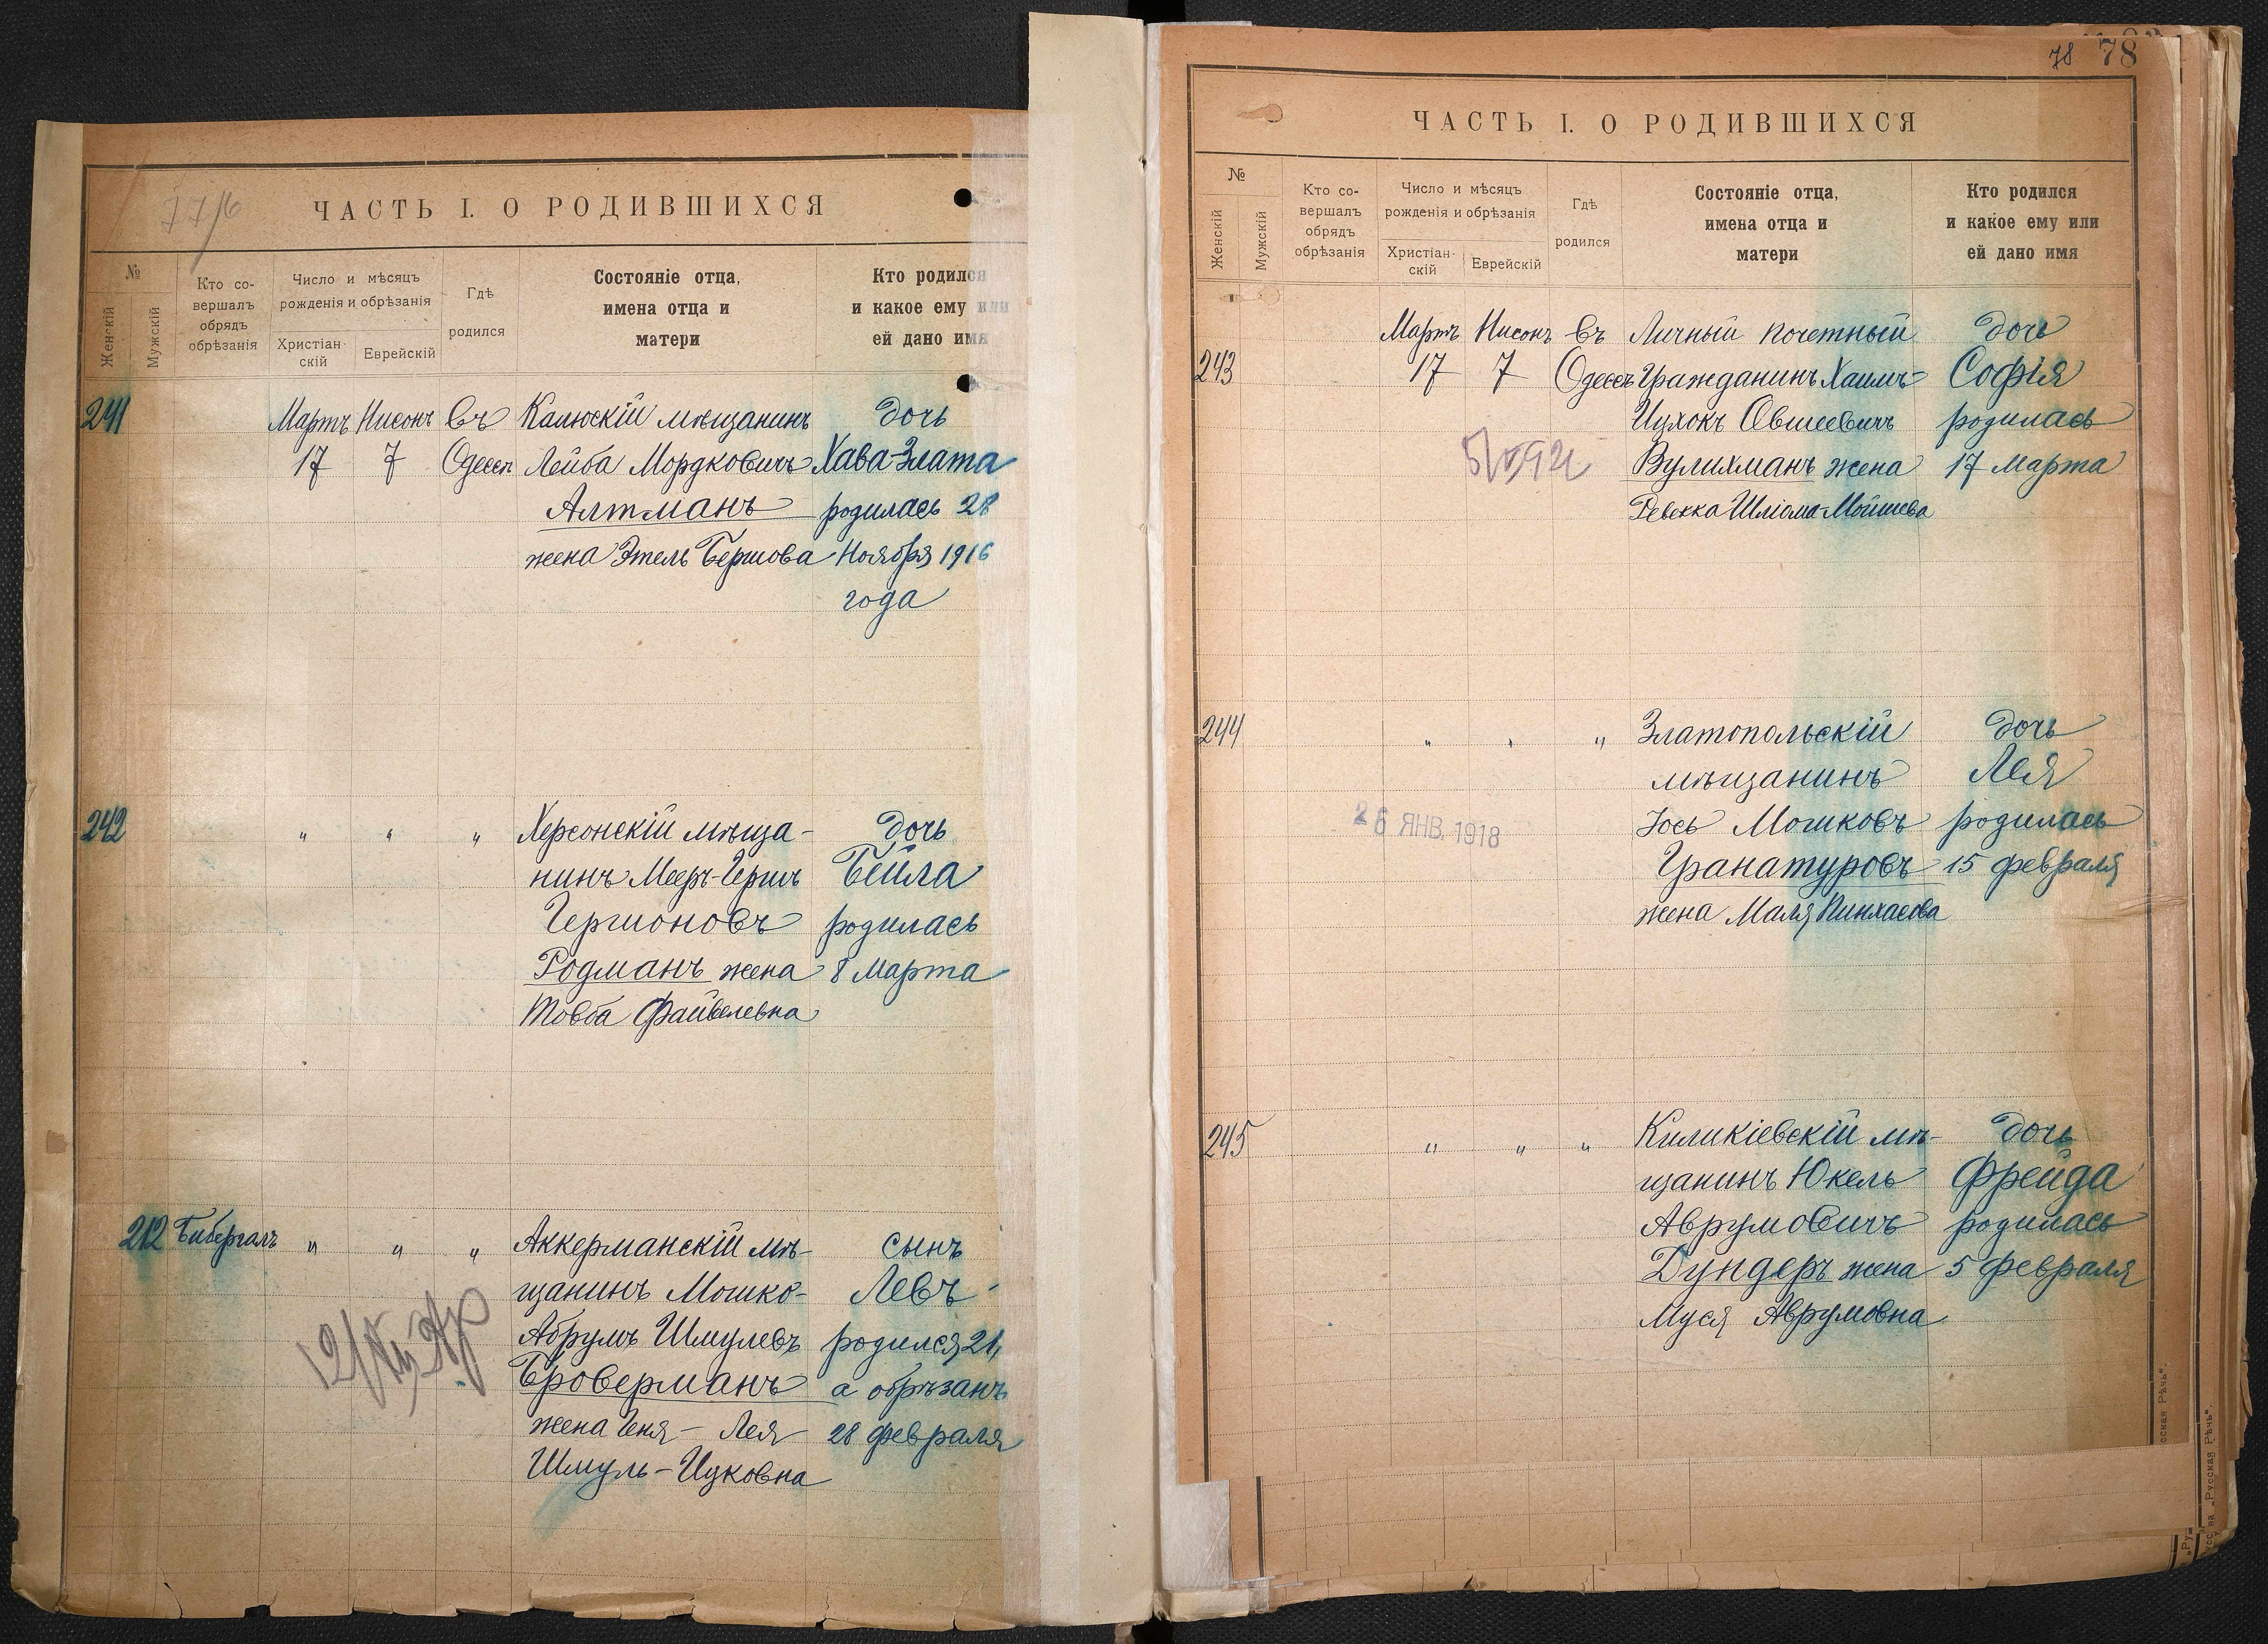 77/6
ЧАСТЬ I. О РОДИВШИХСЯ
№
Женскій
Мужскій
Кто со-
вершалъ
обрядъ
обрѣзанія
Число и мѣсяцъ
рожденія и обрѣзанія
Христіан-
скій
Еврейскій
Гдѣ
родился
Состояніе отца,
имена отца и
матери
Кто родился
и какое ему или
ей дано имя
241 Мартъ Нисонъ Въ Калюскій мѣщанинъ дочь
17 7 Одессѣ Лейба Мордковичъ Хава-Злата
Алтманъ родилась 28
жена Этель Бершова Ноября 1916
года
242 " " " Херсонскій мѣща- дочь
нинъ Мееръ-Гершъ Бейла
Гершоновъ родилась
Родманъ жена 8 Марта
Товба Файвелевна
212 Бибергалъ " " " Аккерманскій мѣ- сынъ
щанинъ Мошко- Левъ
Абрумъ Шмулевъ родился 21,
Броверманъ а обрѣзанъ
жена Геня- Лея 28 февраля
Шмуль-Ицковна
78 78
ЧАСТЬ I. О РОДИВШИХСЯ
№
Женскій
Мужскій
Кто со-
вершалъ
обрядъ
обрѣзанія
Число и мѣсяцъ
рожденія и обрѣзанія
Христіан-
скій
Еврейскій
Гдѣ
родился
Состояніе отца,
имена отца и
матери
Кто родился
и какое ему или
ей дано имя
Мартъ Нисонъ Въ Личный почетный дочь
243 17 7 Одессѣ Гражданинъ Хаимъ- Софія
Ицхокъ Овшеевичъ родилась
Вулихманъ жена 17 Марта
Ревекка Шліома-Мойшева
244 " " " Златопольскій дочь
мѣщанинъ Лея
26 ЯНВ. 1918 Іось Мошковъ родилась
Гранатуровъ 15 февраля
жена Маля Пинхасова
245 " " " Киликіевскій мѣ- дочь
щанинъ Юкель Фрейда
Аврумовичъ родилась
Дундеръ жена 5 февраля
Муся Аврумовна
сская Рѣчь".
на „Русская Рѣчь".